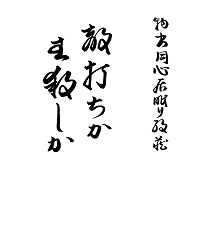 物書同心居眠り紋蔵
敵打ちか
主殺しか